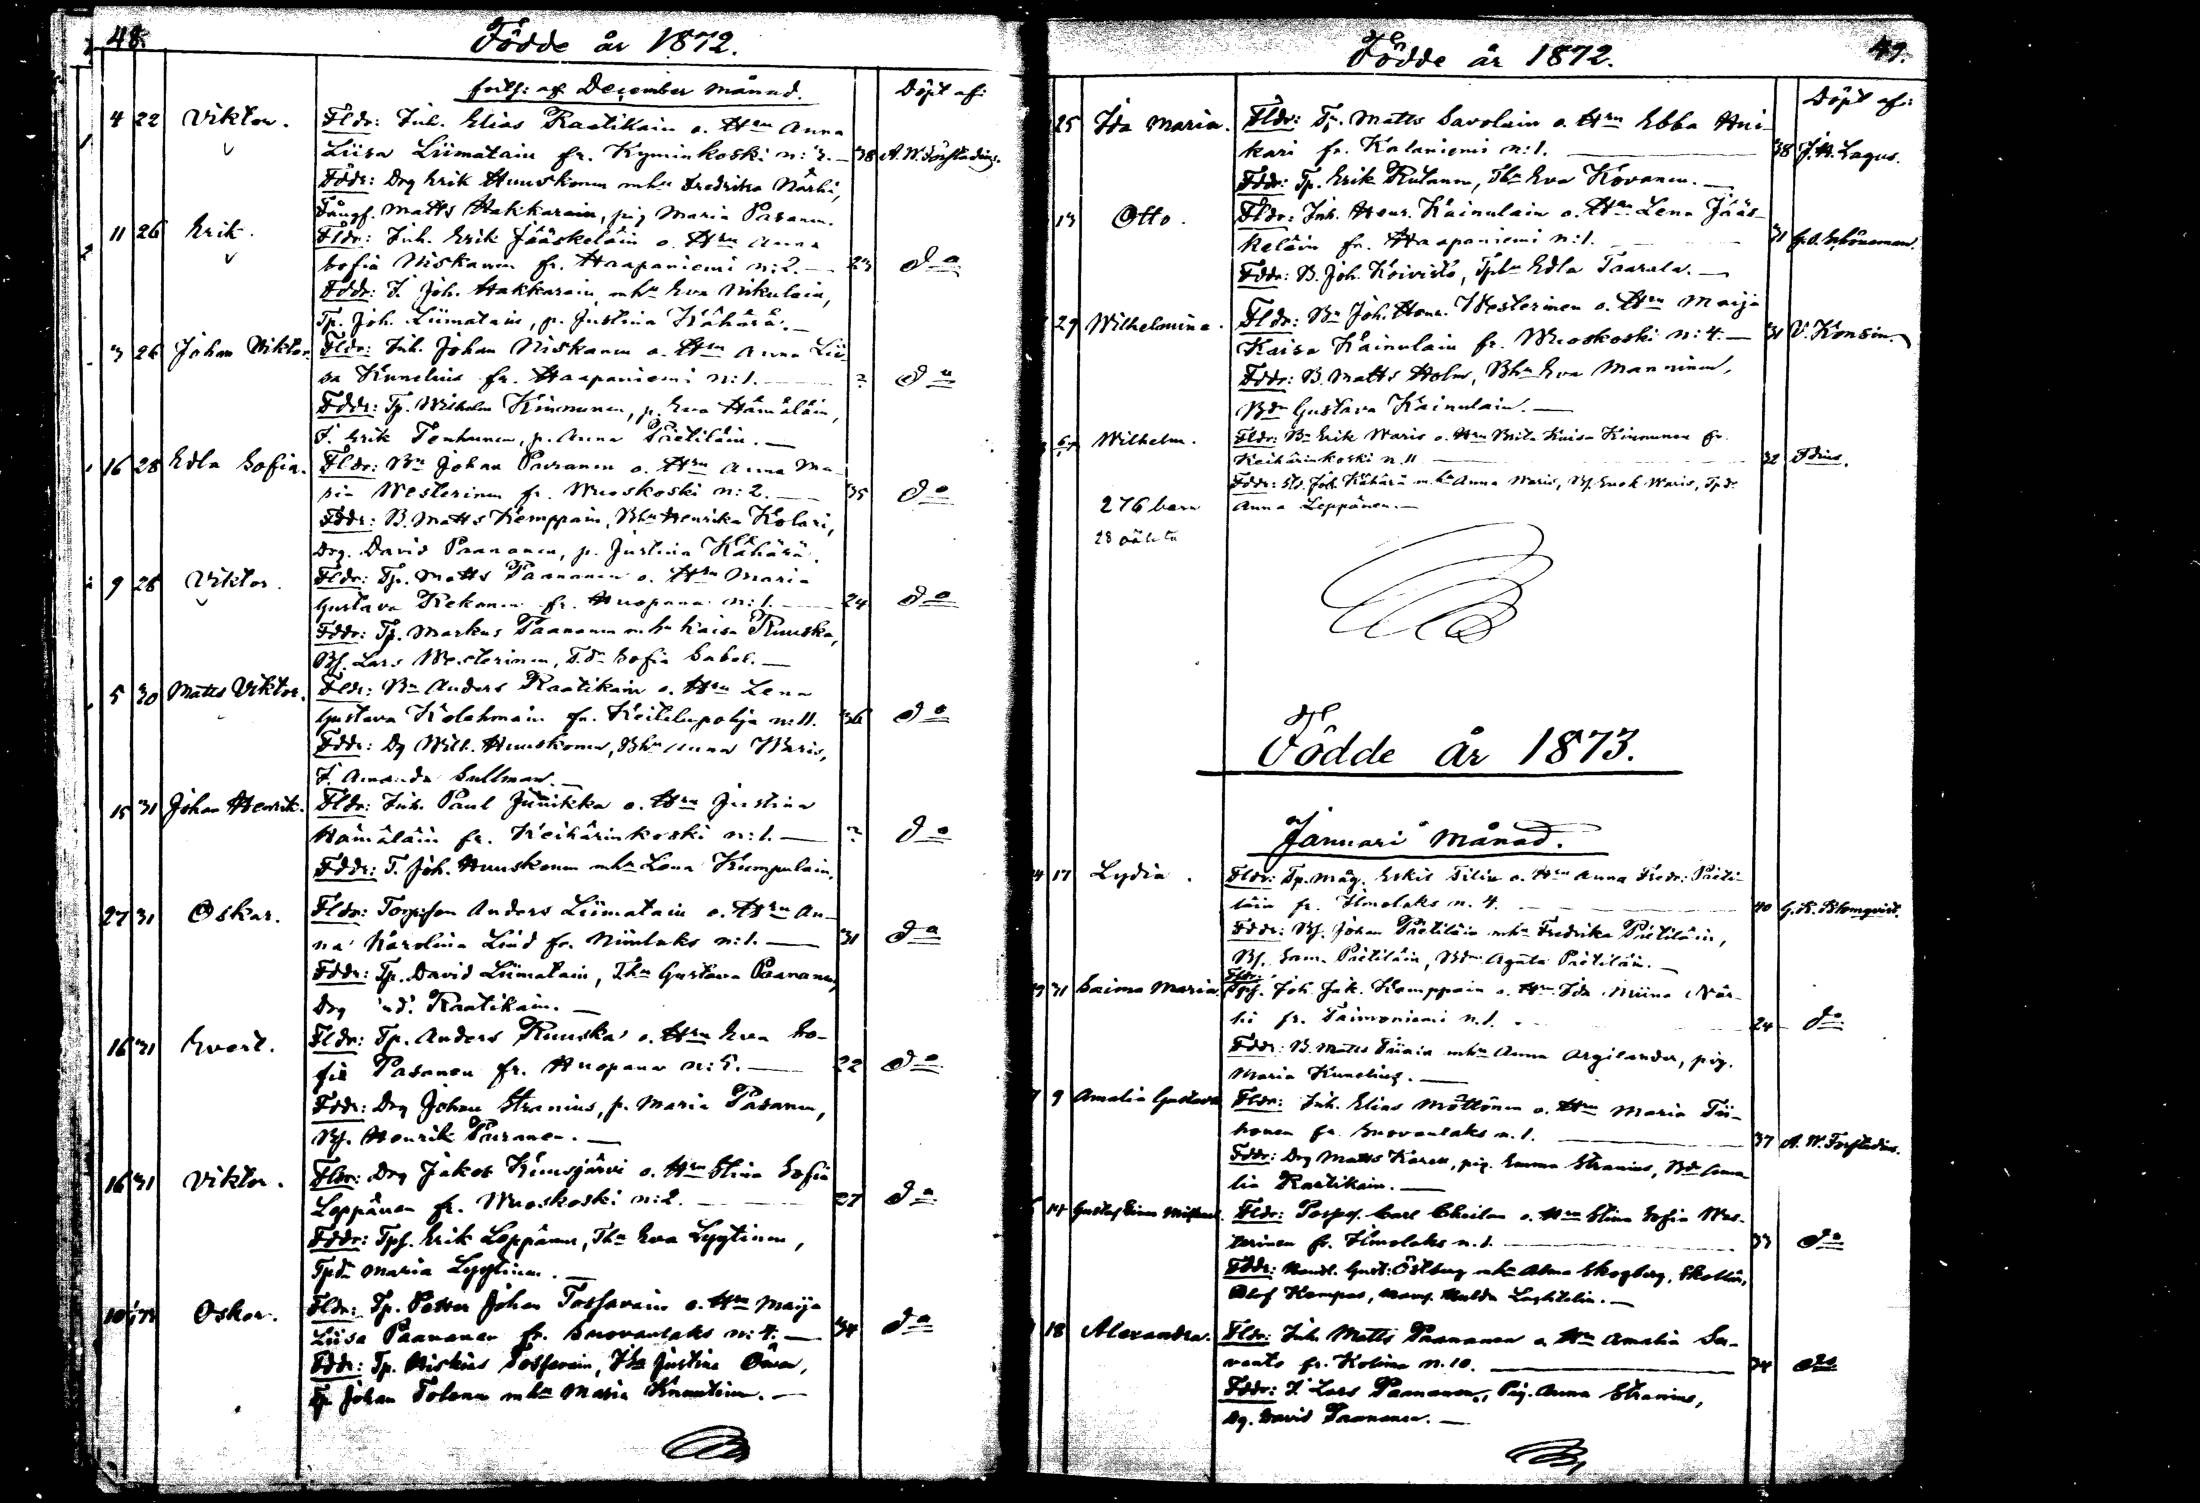 48.
Födde år 1872.
forts: af December månad.
Döpt af:
4 22 Viktor. Fldr: Inh. Elias Raatikain o. Hru Anna
Liisa Liimatain fr. Kyminkoski n:3. — 38 A. W. Forstadius.
Fddr: Drg Erik Huuskonen mhu Fredrika Närhi,
Matts Hakkarain, pig Maria Pasanen.
11 26 Erik. Fldr: Inh. Erik Jääskeläin o. Hru Anna
Sofia Niskanen fr. Haapaniemi n:2. — 23 do
Fddr: I. Joh. Hakkarain mhu Eva Nikulain,
Tp. Joh. Liimatain, p. Justina Kähärä. —
3 26 Johan Viktor. Fldr: Inh. Johan Niskanen o. Hru Anna Lii-
sa Kunelius fr. Haapaniemi n:1. — ? do
Fddr: Tp. Wilhelm Kinnunen, p. Eva Hämäläin,
I. Erik Tenhunen, p. Anna Pietiläin. —
16 28 Edla Sofia. Fldr: Bn Johan Puranen o. Hru Anna Ma-
ria Westerinen fr. Wuoskoski n:2. — 35 do
Fddr: B. Matts Kemppain, Bhu Henrika Kolari,
Drg. David Paananen, p. Justina Kähärä.
9 28 Viktor. Fldr: Tp. Matts Paananen o. Hru Maria
Gustava Kekonen fr. Huopana n:1. — 24 do
Fddr: Tp. Markus Paananen mhu Kaisa Ruuska,
Bs. Lars Westerinen, T.dr Sofia Sabel. —
5 30 Matts Viktor. Fldr: Bn Anders Raatikain o. Hru Lena
Gustava Kolehmain fr. Keitelepohja n:11. 36 do
Fddr: Dg Wilh. Huuskonen, Bhu Anna Waris,
F. Amanda Sallman. —
15 31 Johan Henrik. Fldr: Inh. Paul Junikka o. Hru Justina
Hämäläin fr. Keihärinkoski n:1. — ? do
Fddr: T. Joh. Huuskonen mhu Lena Kumpulain.
27 31 Oskar. Fldr: Torpson Anders Liimatain o. Hru An-
na Karolina Lind fr. Niinilaks n:1. — 31 do
Fddr: Tp. David Liimatain, Thu Gustava Paananen,
Drg Raatikain. —
16 31 Evert. Fldr: Tp. Anders Ruuska o. Hru Eva So-
fia Pasanen fr. Huopana n:5. — 22 do
Fddr: Drg Johan Stranius, p. Maria Pasanen,
Bs. Henrik Puranen. —
16 31 Viktor. Fldr: Drg Jakob Kuusjärvi o. Hru Stina Sofia
Leppänen fr. Wuoskoski n:2. — 27 do
Fddr: Tps. Erik Leppänen, Thu Eva Lyytinen,
Tpdr Maria Lyytinen. —
10 Oskar. Fldr: Tp. Petter Johan Tossavain o. Hru Maija
Liisa Paananen fr. Suovanlaks n:4. — 34 do
Fddr: Tp. Tossavain, Thu Justina
Tp. Johan Tolonen mhu Maria Knuutinen. —
49.
Födde år 1872.
Döpt af:
25 Ida Maria. Fldr: Tp. Matts Savolain o. Hru Ebba Hui-
kari fr. Kalaniemi n:1. — 38 J. H. Lagus.
Fddr: Tp. Erik Rutanen, Thu Eva Kovanen. —
13 Otto. Fldr: Inh. Henr. Kainulain o. Hru Lena Jääs-
keläin fr. Haapaniemi n:1. — 31 G. A. Schöneman.
Fddr: B. Joh. Koivisto, Tphu Edla Taavala. —
29 Wilhelmina. Fldr: Bn Joh. Henr. Westerinen o. Hru Maija
Kaisa Kainulain fr. Wuoskoski n:4. — 31 V. Konsin.
Fddr: B. Matts Holm, Bhu Eva Manninen,
Bdr Gustava Kainulain. —
Wilhelm. Fldr: Bn Erik Waris o. Hru Brita Kaisa Kinnunen fr.
Keihärinkoski n. 11. — 32
Fddr: Joh. Kähärä mhu Anna Waris, Bs. Enok Waris, Tpdr
Anna Leppänen. —
276 barn
Födde år 1873.
Januari Månad.
17 Lydia. Fldr: Tp. måg. Eskil Tilin o. Hru Anna Fredr. Pieti-
läin fr. Ilmolaks n. 4. — 40 G. K. Blomqvist.
Fddr: Bs. Johan Pietiläin mhu Fredrika Pietiläin,
Bs. Sam. Pietiläin, Bdr Agata Pietiläin. —
31 Saima Maria. Fldr: Tps. Joh. Jak. Kemppain o. Hru Ida Miina När-
hi fr. Taimoniemi n.1. — 24 do
Fddr: B. Matts Piiain mhu Anna Argilander, pig.
Maria Kunelius. —
9 Amalia Gustava Fldr: Inh. Elias Möttönen o. Hru Maria Tii-
honen fr. Suovanlaks n. 1. — 37 A. W. Forstadius.
Fddr: Drg Matts Karell, pig. Emma Stranius, Bdr Ama
lia Raatikain. —
14 Gustaf Einar Fldr: Torps. Carl o. Hru Stina Sofia Wes-
terinen fr. Ilmolaks n.1. — 33 do
Fddr: Handl. Gust: Östberg mhu Alma Skogberg,
Olof Kempas, Hulda —
18 Alexandra. Fldr: Inh. Matts Paananen o. Hru Amalia Sa-
vento fr. Kolima n.10. — 34 do
Fddr: I. Lars Paananen, Pig. Anna Stranius,
Dg. David Paananen. —